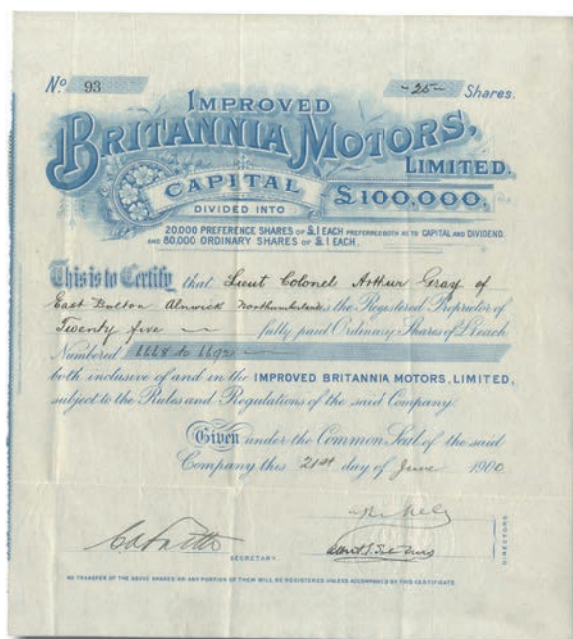 No. 93 -25- Shares.
IMPROVED
BRITANNIA MOTORS,
LIMITED.
CAPITAL £100,000,
DIVIDED INTO
20,000 PREFERENCE SHARES OF £1 EACH PREFERRED BOTH AS TO CAPITAL AND DIVIDEND.
AND 80,000 ORDINARY SHARES OF £1 EACH.
This is to Certify that Lieut Colonel Arthur Gray of
East Bolton Alnwick Northumberland is the Registered Proprietor of
Twenty five fully paid Ordinary Shares of £1 each
Numbered 1668 to 1692
both inclusive of and in the IMPROVED BRITANNIA MOTORS, LIMITED,
subject to the Rules and Regulations of the said Company.
Given under the Common Seal of the said
Company this 21st day of June 1900
SECRETARY
DIRECTORS
NO TRANSFER OF THE ABOVE SHARES OR ANY PORTION OF THEM WILL BE REGISTERED UNLESS ACCOMPANIED BY THIS CERTIFICATE